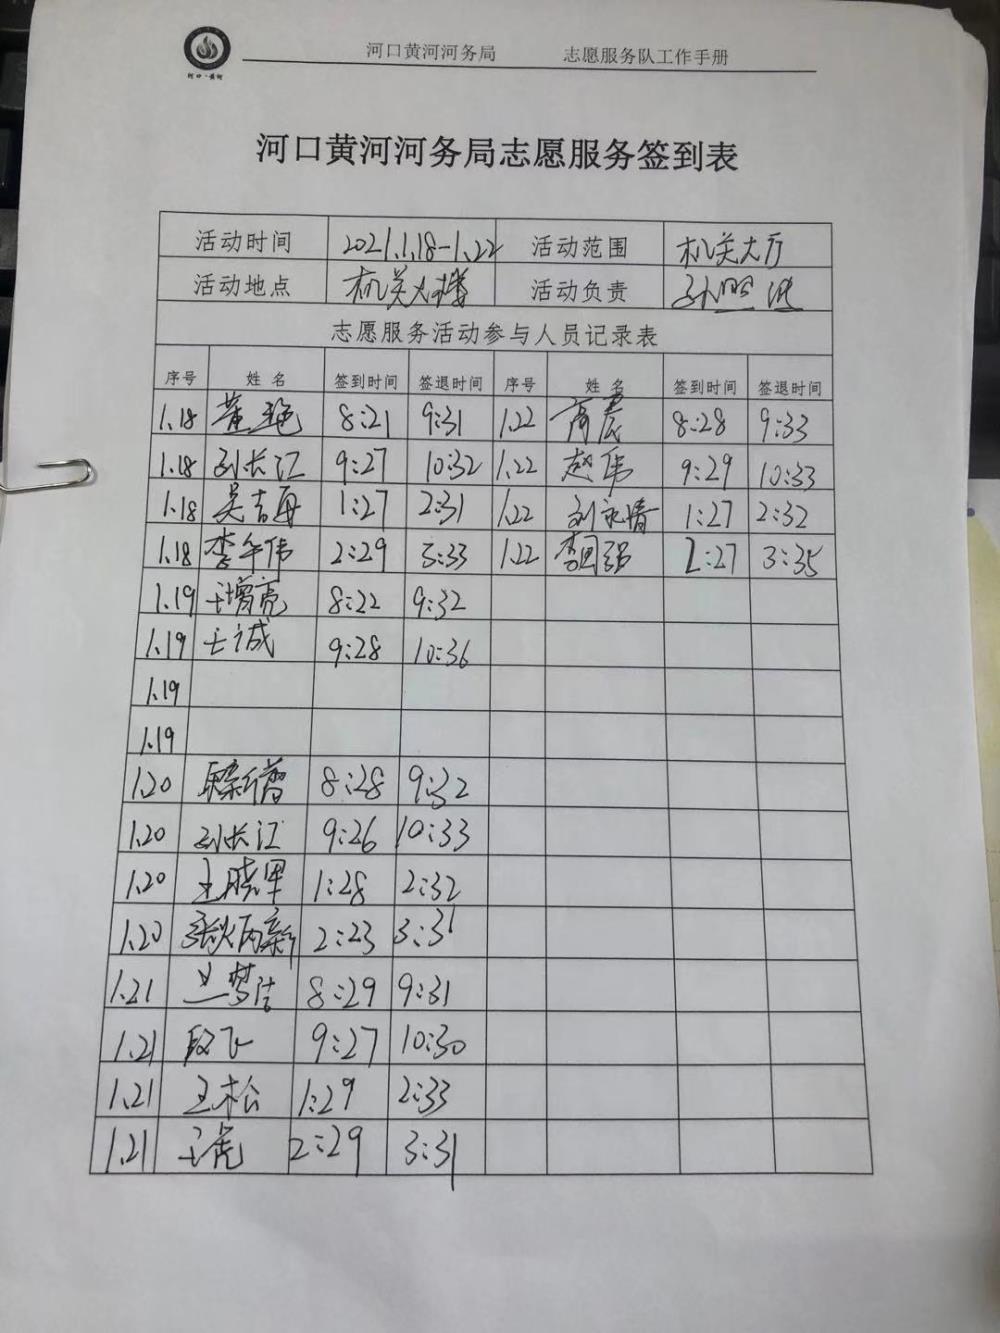 河口·黄河
河口黄河河务局 志愿服务队工作手册
河口黄河河务局志愿服务签到表
活动时间 2021.1.18-1.22 活动范围 机关大厅
活动地点 机关大楼 活动负责
志愿服务活动参与人员记录表
序号 姓名 签到时间 签退时间 序号 姓名 签到时间 签退时间
1.18 董艳 8:21 9:31 1.22 商震 8:28 9:33
1.18 刘长江 9:27 10:32 1.22 赵伟 9:29 10:33
1.18 吴吉再 1:27 2:31 1.22 刘永婧 1:27 2:32
1.18 李午伟 2:29 3:33 1.22 李国强 2:27 3:35
1.19 王增亮 8:22 9:32
1.19 王诚 9:28 10:36
1.19
1.19
1.20 8:28 9:32
1.20 刘长江 9:26 10:33
1.20 王晓军 1:28 2:32
1.20 2:23 3:31
1.21 兰梦洁 8:29 9:31
1.21 段飞 9:27 10:30
1.21 王松 1:29 2:33
1.21 王虎 2:29 3:31